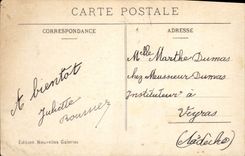 CARTE POSTALE
CORRESPONDANCE
ADRESSE
A bientot
Juliette
Roussier
Melle Marthe Dumas
chez Monsieur Dumas
Instituteur à
Veyras
(Ardèche)
Edition Nouvelles Galeries